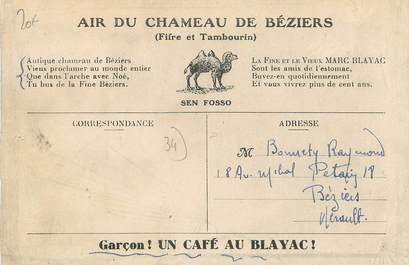 20f
AIR DU CHAMEAU DE BÉZIERS
(Fifre et Tambourin)
Antique chameau de Béziers
Viens proclamer au monde entier
Que dans l'arche avec Noé,
Tu bus de la Fine Béziers.
LA FINE ET LE VIEUX MARC BLAYAC
Sont les amis de l'estomac,
Buvez-en quotidiennement
Et vous vivrez plus de cent ans.
SEN FOSSO
CORRESPONDANCE
34)
ADRESSE
M Raymond
18 Av.
Béziers
Hérault.
Garçon! UN CAFÉ AU BLAYAC!